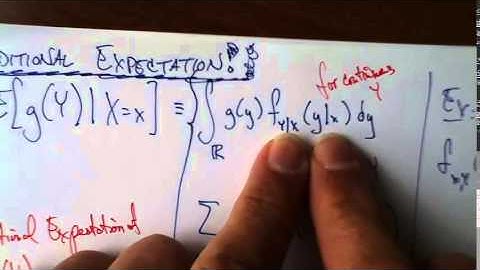 DITIONAL EXPECTATION:
E[g(Y)|X=x] ≡ ∫_ℝ g(y) f_{Y|X}(y|x) dy
for continuous Y
Σ
tional Expectation of
Ex:
f_{X,Y}